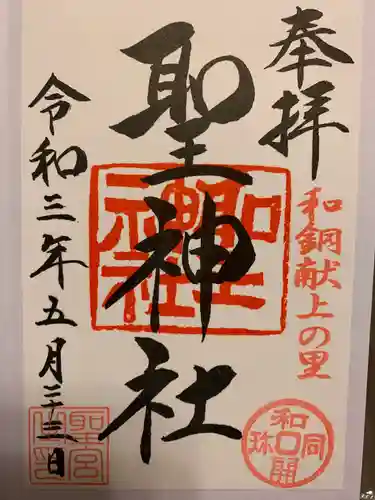 奉拝
和銅献上の里
聖神社
聖神社
令和三年五月二十三日
和同開珎